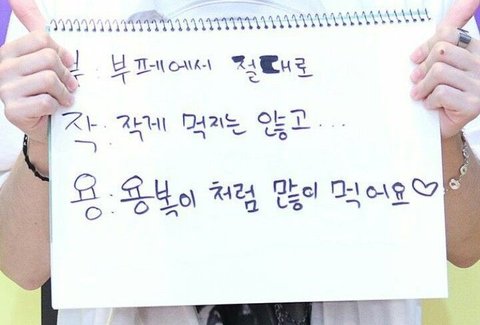 부 : 부페에서 절대로
작 : 작게 먹지는 않고...
용 : 용복이 처럼 많이 먹어요♡